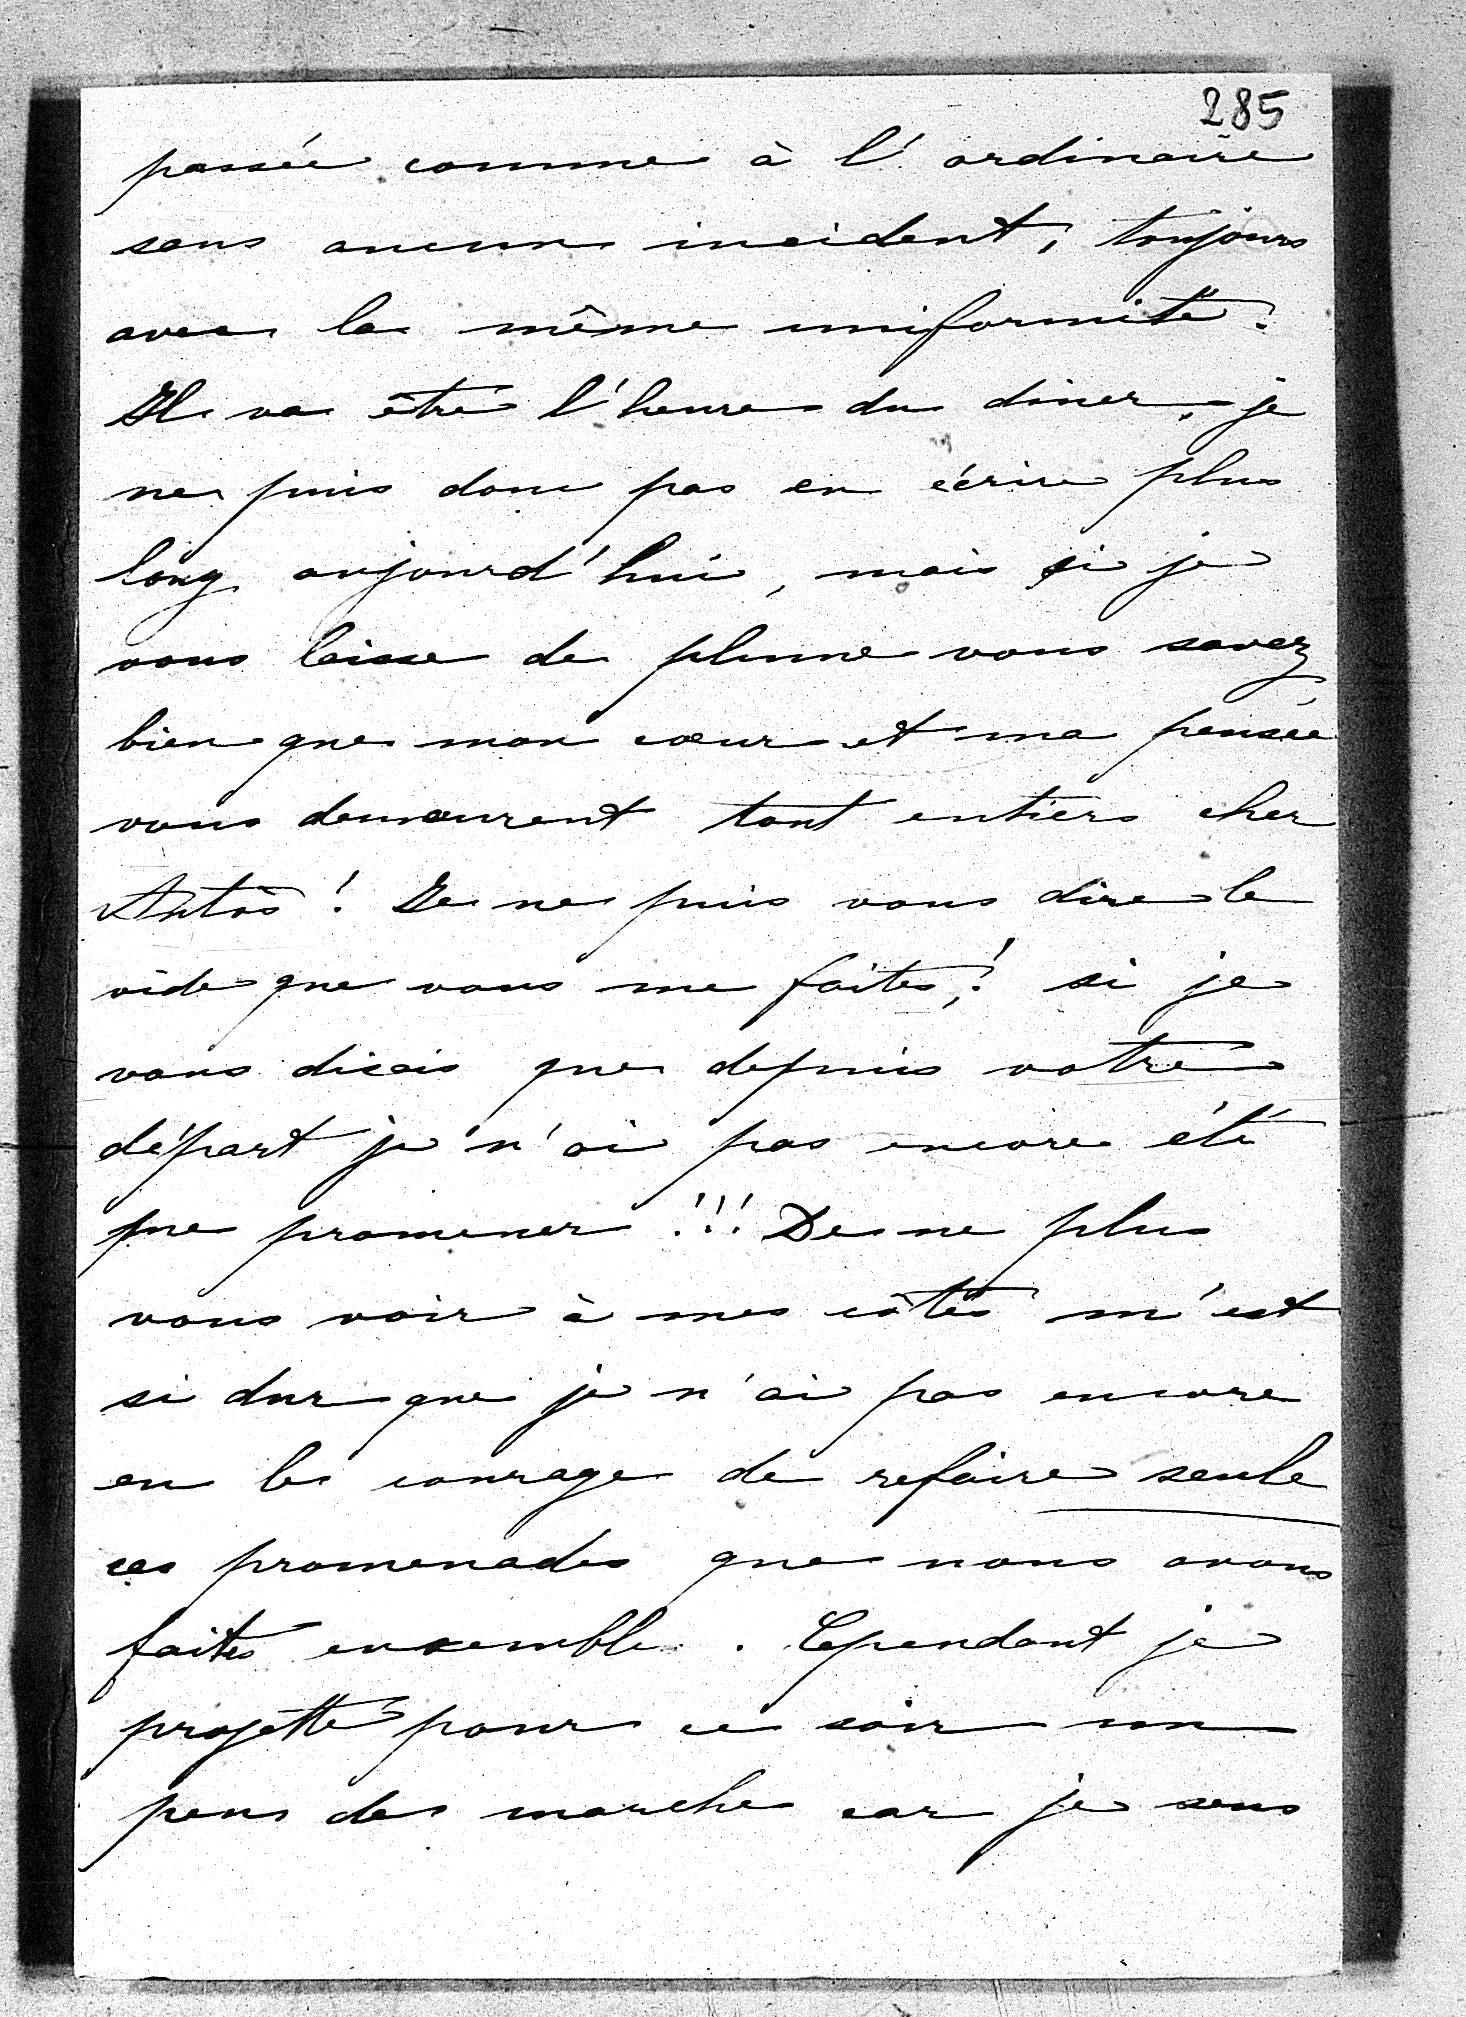 285
passée comme à l'ordinaire
sans aucun incident, toujours
avec la même uniformité.
Il va être l'heure du diner, je
ne puis donc pas en écrire plus
long aujourd'hui, mais si je
vous laisse de plume vous savez
bien que mon cœur et ma pensée
vous demeurent tout entiers cher
Antòs ! Je ne puis vous dire le
vide que vous me faites,! si je
vous disais que depuis votre
départ je n'ai pas encore été
me promener !!! De ne plus
vous voir à mes côtés m'est
si dur que je n'ai pas encore
eu le courage de refaire seule
ces promenades que nous avons
faites ensemble. Cependant je
projette pour ce soir un
peu de marche car je sens